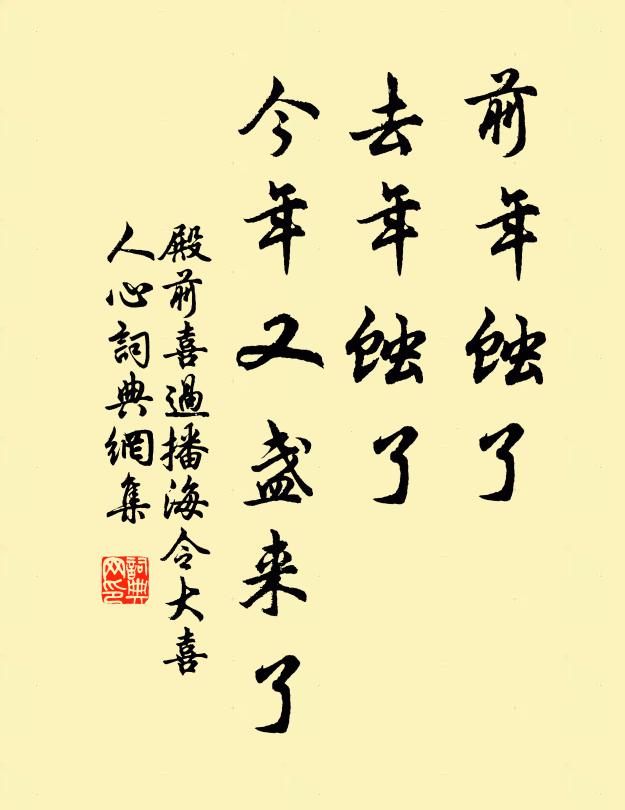 前年蝕了
去年蝕了
今年又盏来了
殿前喜過播海令大喜
人心詞典網集
詞典网印